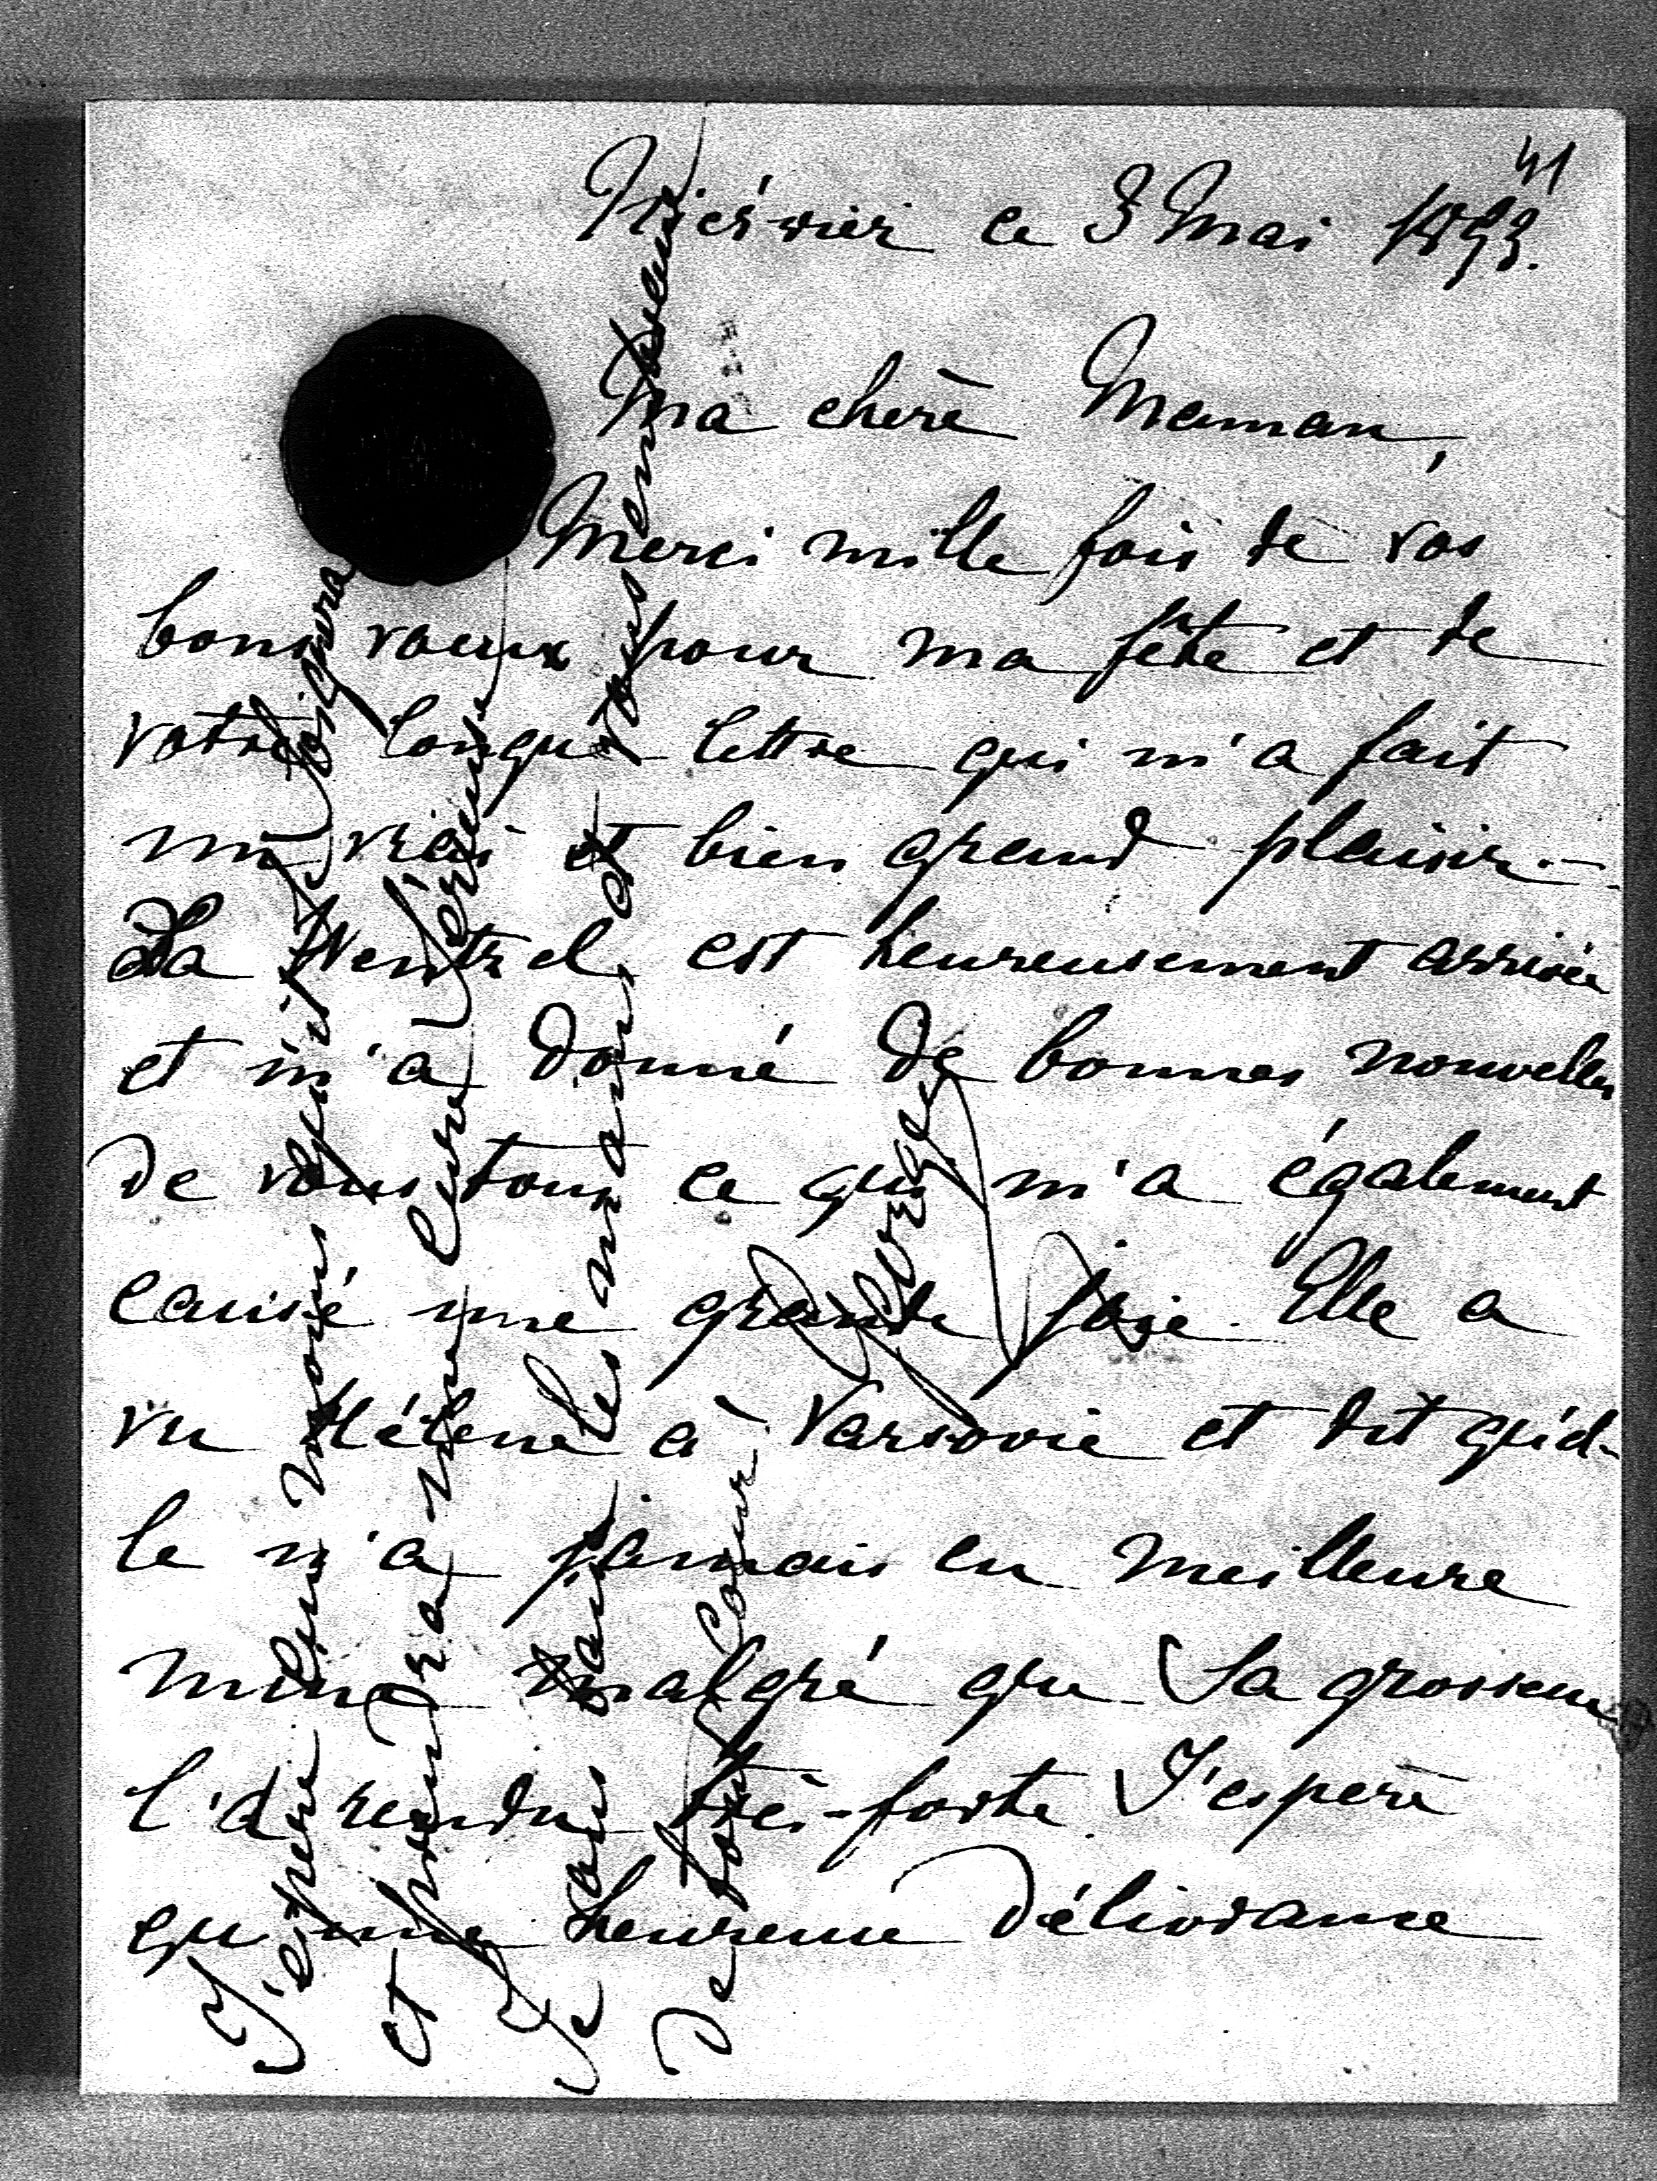 41
Nieswiez ce 3 Mai 1893.
Ma chère Maman,
Merci mille fois de vos
bons voeux pour ma fête et de
votre longue lettre qui m'a fait
un vrai et bien grand plaisir.
La Wentzel est heureusement arrivée
et m'a donné de bonnes nouvelles
de vous tous ce qui m'a également
causé une grande joie. Elle a
vu Hélène à Varsovie et dit qu'el-
le n'a jamais eu meilleure
mine malgré que sa grossesse
l'a rendue très-forte. J'espère
qu'une heureuse délivrance
J'espère que mons esprit soignera
et prendra une cure sérieuse
Je vous baise les mains et vous embrasse
de tout coeur
George